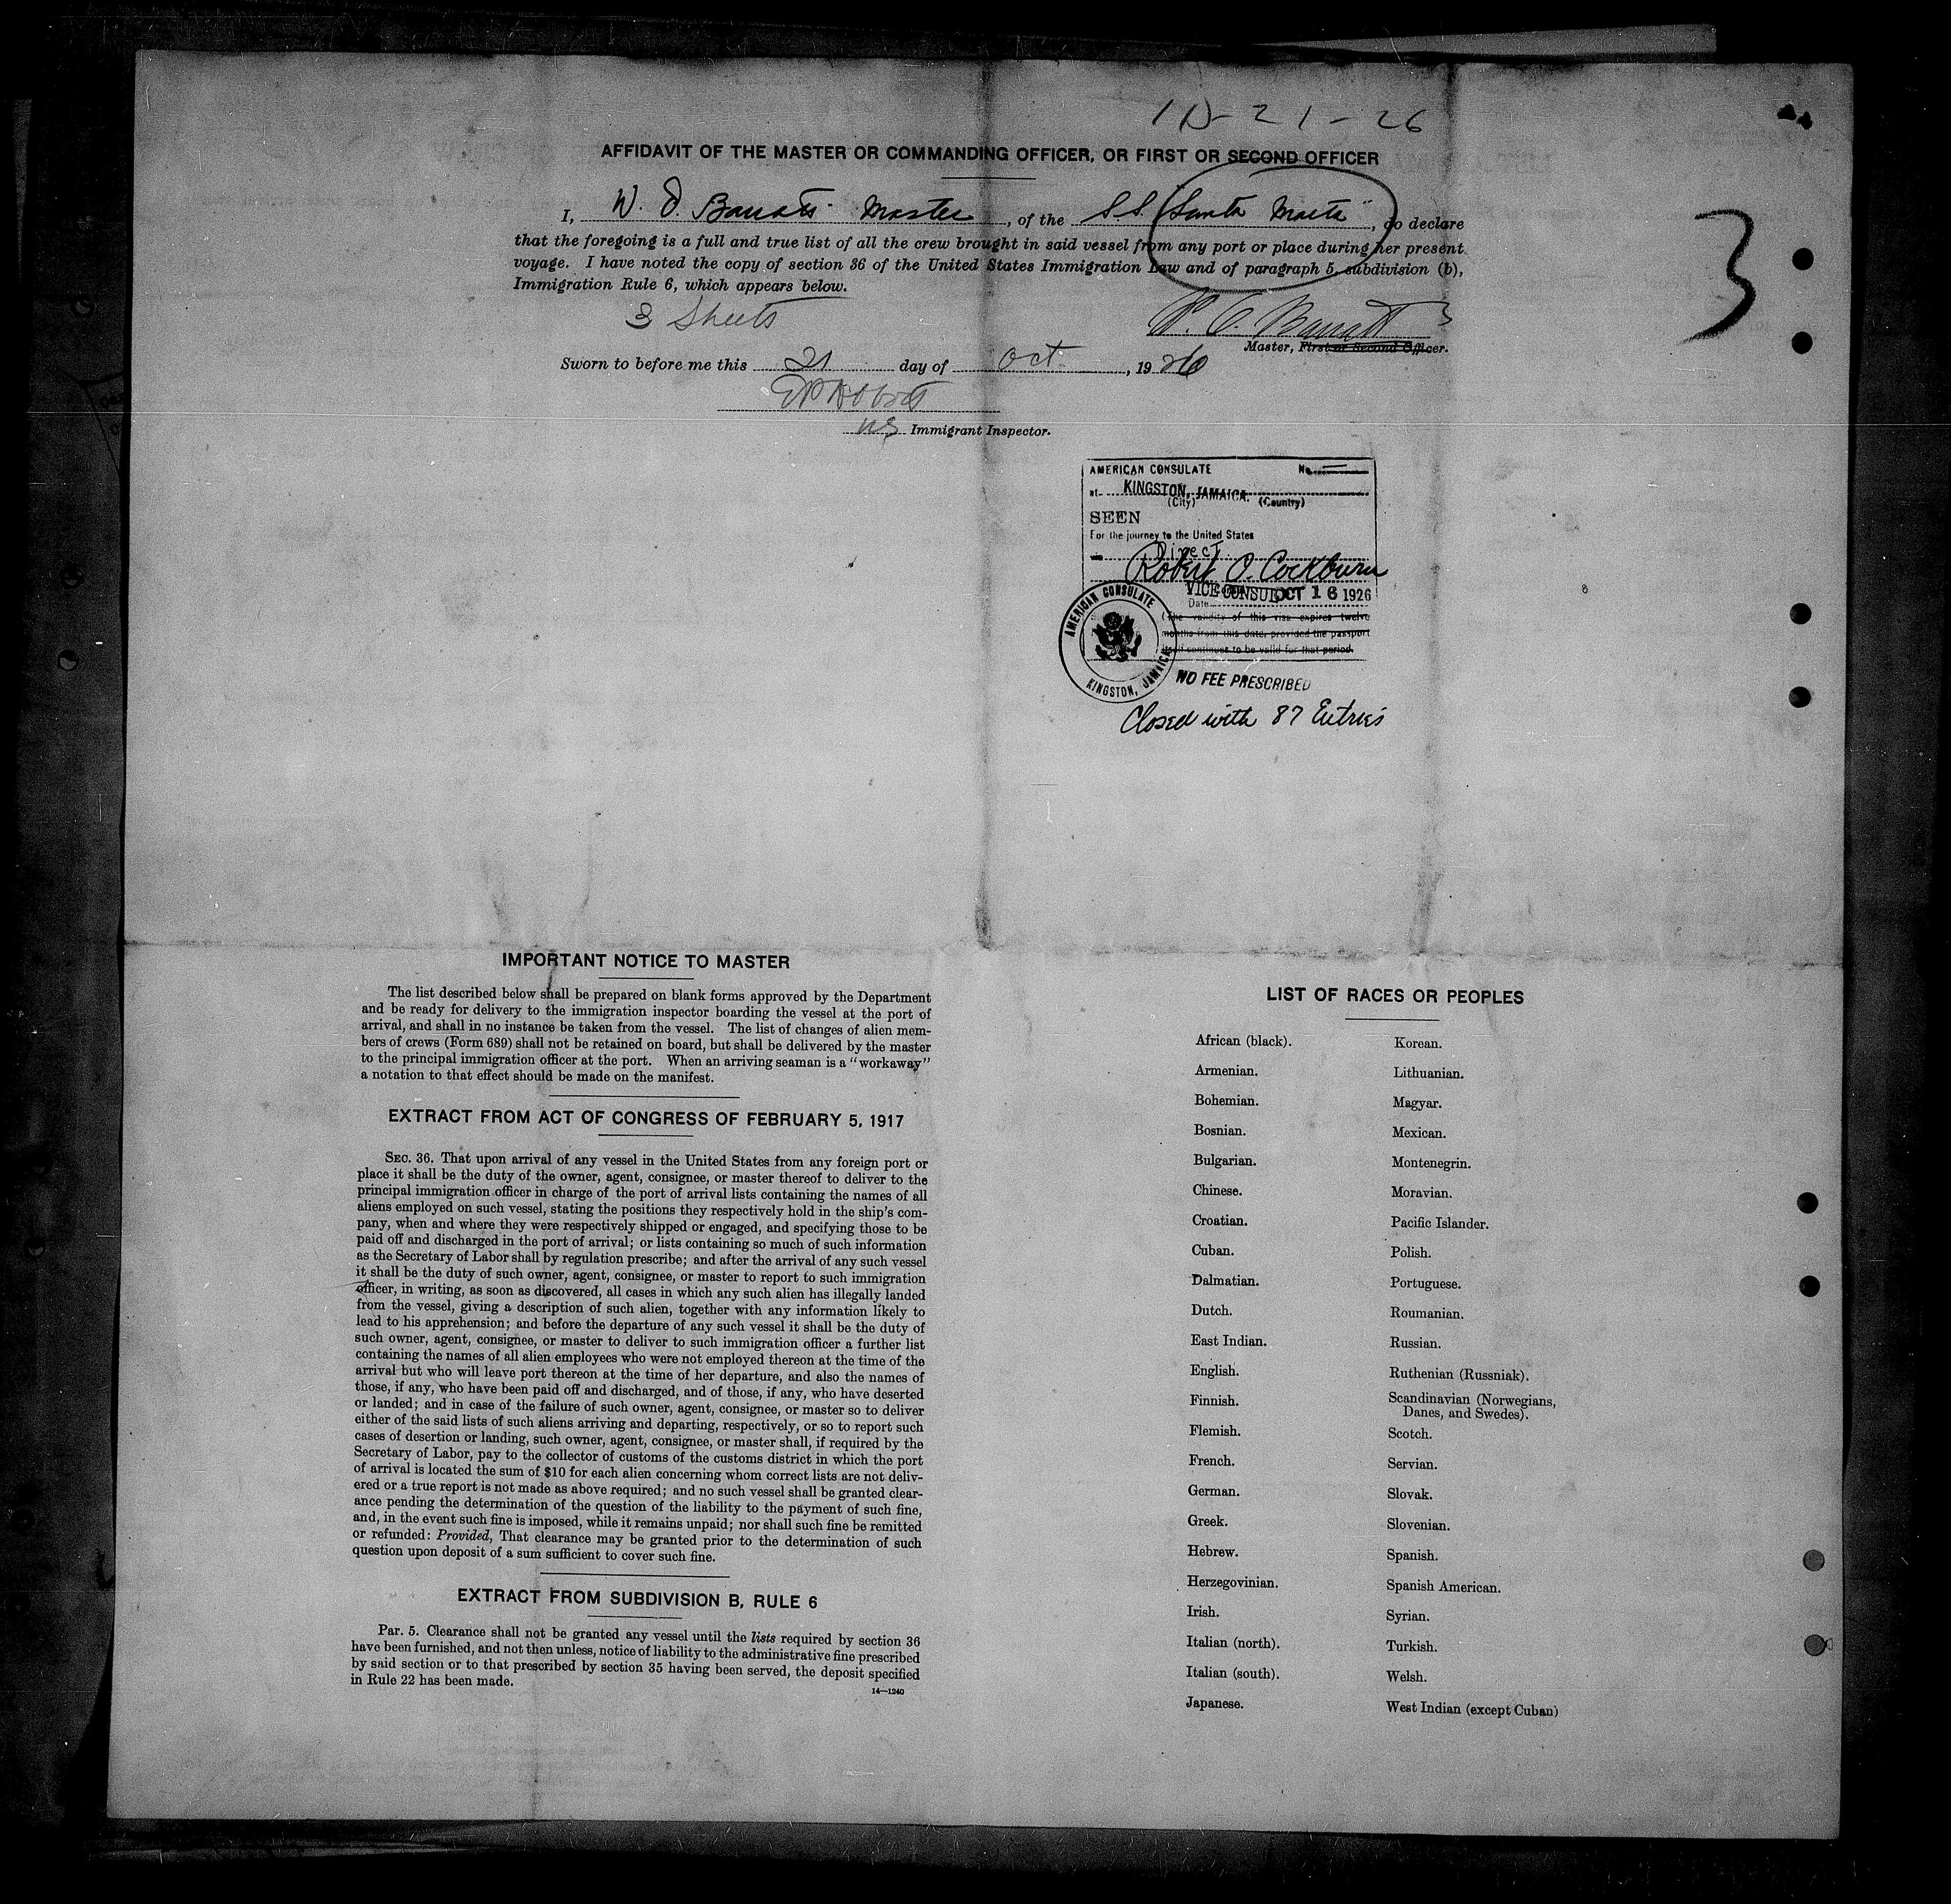 10-21-26
AFFIDAVIT OF THE MASTER OR COMMANDING OFFICER, OR FIRST OR SECOND OFFICER
I, W. O. Barratt Master, of the S.S. "Santa Marta", do declare
that the foregoing is a full and true list of all the crew brought in said vessel from any port or place during her present
voyage. I have noted the copy of section 36 of the United States Immigration Law and of paragraph 5, subdivision (b),
Immigration Rule 6, which appears below.
3
3 Sheets
Barratt
Master, First or Second Officer.
Sworn to before me this 21 day of Oct, 1926
US Immigrant Inspector.
AMERICAN CONSULATE No.
at KINGSTON, JAMAICA.
(City) (Country)
SEEN
For the journey to the United States
via Direct
Robert O. Cockburn
VICE CONSUL OCT 16 1926
Date
(The validity of this visa expires twelve
months from this date, provided the passport
itself continues to be valid for that period.
AMERICAN CONSULATE
KINGSTON, JAMAICA
NO FEE PRESCRIBED
Closed with 87 Entries
IMPORTANT NOTICE TO MASTER
The list described below shall be prepared on blank forms approved by the Department
and be ready for delivery to the immigration inspector boarding the vessel at the port of
arrival, and shall in no instance be taken from the vessel. The list of changes of alien mem-
bers of crews (Form 689) shall not be retained on board, but shall be delivered by the master
to the principal immigration officer at the port. When an arriving seaman is a "workaway"
a notation to that effect should be made on the manifest.
EXTRACT FROM ACT OF CONGRESS OF FEBRUARY 5, 1917
SEC. 36. That upon arrival of any vessel in the United States from any foreign port or
place it shall be the duty of the owner, agent, consignee, or master thereof to deliver to the
principal immigration officer in charge of the port of arrival lists containing the names of all
aliens employed on such vessel, stating the positions they respectively hold in the ship's com-
pany, when and where they were respectively shipped or engaged, and specifying those to be
paid off and discharged in the port of arrival; or lists containing so much of such information
as the Secretary of Labor shall by regulation prescribe; and after the arrival of any such vessel
it shall be the duty of such owner, agent, consignee, or master to report to such immigration
officer, in writing, as soon as discovered, all cases in which any such alien has illegally landed
from the vessel, giving a description of such alien, together with any information likely to
lead to his apprehension; and before the departure of any such vessel it shall be the duty of
such owner, agent, consignee, or master to deliver to such immigration officer a further list
containing the names of all alien employees who were not employed thereon at the time of the
arrival but who will leave port thereon at the time of her departure, and also the names of
those, if any, who have been paid off and discharged, and of those, if any, who have deserted
or landed; and in case of the failure of such owner, agent, consignee, or master so to deliver
either of the said lists of such aliens arriving and departing, respectively, or so to report such
cases of desertion or landing, such owner, agent, consignee, or master shall, if required by the
Secretary of Labor, pay to the collector of customs of the customs district in which the port
of arrival is located the sum of $10 for each alien concerning whom correct lists are not deliv-
ered or a true report is not made as above required; and no such vessel shall be granted clear-
ance pending the determination of the question of the liability to the payment of such fine,
and, in the event such fine is imposed, while it remains unpaid; nor shall such fine be remitted
or refunded: Provided, That clearance may be granted prior to the determination of such
question upon deposit of a sum sufficient to cover such fine.
EXTRACT FROM SUBDIVISION B, RULE 6
Par. 5. Clearance shall not be granted any vessel until the lists required by section 36
have been furnished, and not then unless, notice of liability to the administrative fine prescribed
by said section or to that prescribed by section 35 having been served, the deposit specified
in Rule 22 has been made.
14—1240
LIST OF RACES OR PEOPLES
African (black).
Armenian.
Bohemian.
Bosnian.
Bulgarian.
Chinese.
Croatian.
Cuban.
Dalmatian.
Dutch.
East Indian.
English.
Finnish.
Flemish.
French.
German.
Greek.
Hebrew.
Herzegovinian.
Irish.
Italian (north).
Italian (south).
Japanese.
Korean.
Lithuanian.
Magyar.
Mexican.
Montenegrin.
Moravian.
Pacific Islander.
Polish.
Portuguese.
Roumanian.
Russian.
Ruthenian (Russniak).
Scandinavian (Norwegians,
Danes, and Swedes).
Scotch.
Servian.
Slovak.
Slovenian.
Spanish.
Spanish American.
Syrian.
Turkish.
Welsh.
West Indian (except Cuban)